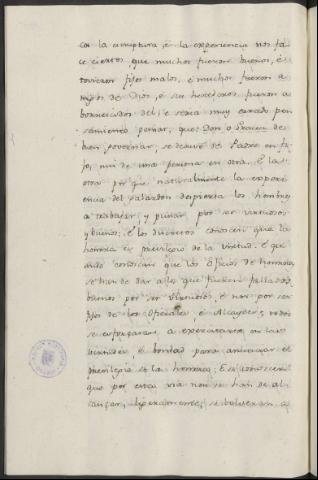 ca la escriptura, é la experiencia nos fa-
ce ciertos, que muchos fueron buenos, é
tovieron fijos malos, é muchos fueron a
migos de Dios, é sus herederos fueron a
borrecidos del: é seria muy errado pen
samiento pensar, que Don o Gracia de
bien governar, se derive de Padre en fi-
jo, nin de una persona en otra. É la
otra por que naturalmente la experi
encia del galardon despierta los hombres
a trabajar, y punar por ser virtuosos
y buenos: É los discretos conoscen que la
honrra es previlegio de la virtud. É qu
ando conoscen que los Oficios de honrra
se han de dar a los que fueren fallados
buenos por ser virtuosos, é non por ser
fijos de los Oficiales, é Alcaydes, todos
se esfuerzan a exercitarse en las
virtudes, é bondad para alcanzar el
previlegio de la honrra; É si conoscen
que por esta via non se han de al
canzar, ligeramente se bolverán a